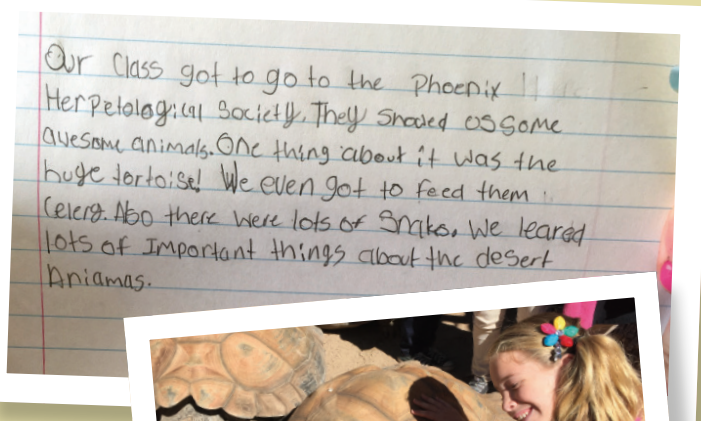 Our Class got to go to the Phoenix
Herpetological Society. They showed us some
awesome animals. One thing about it was the
huge tortoise! We even got to feed them
Celery. Also there were lots of Snakes. We leared
lots of Important things about the desert
Aniamas.